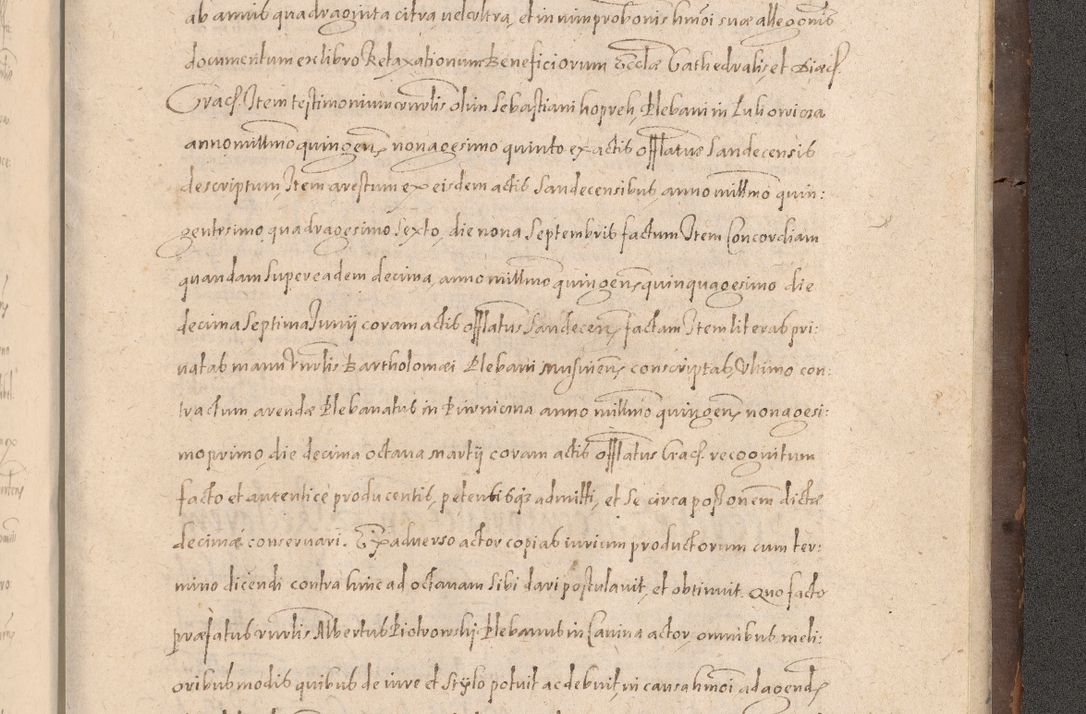 ab annis quadraginta citra vel ultra, et in vim probonis hmoi suæ allegonis
documentum ex libro Relaxationum Beneficiorum Ecclæ Cathedralis, et Diæc.
Crac. Item testimonium vnrlis olim Sebastiani Plebani in
anno millmo quingen, nonagesimo quinto ex actis offlatus Sandecensis
descriptum, Item arestum ex eisdem actis Sandecensibus, anno millmo quin:
gentesimo quadragesimo sexto, die nona Septembris factum Item Concordiam
quandam super eadem decima, anno millmo quingen, quinquagesimo die
decima septima Junij coram actis offlatus Sandecen, factam Item literas pri:
uatas manu vnrlis Bartholomæi Plebani conscriptas, Vltimo con:
tractum arendæ Plebanatus in anno millmo quingen, nonagesi:
mo primo, die decima octaua Martij coram actis offlatus Crac. recognitum
facto et autenticè producentis, petentisqz admitti, et se circa possonem dictæ
decimæ conseruari. Ex aduerso actor copias iurium productorum cum ter:
mino dicendi contra hinc ad octauam sibi dari postulauit, et obtinuit. Quo facto
præfatus vnrlis Albertus Piotrowskij Plebanus in Canina actor, omnibus meli:
oribus modis quibus de iure et stylo potuit ac debuit, in causa hmoi ad agend,